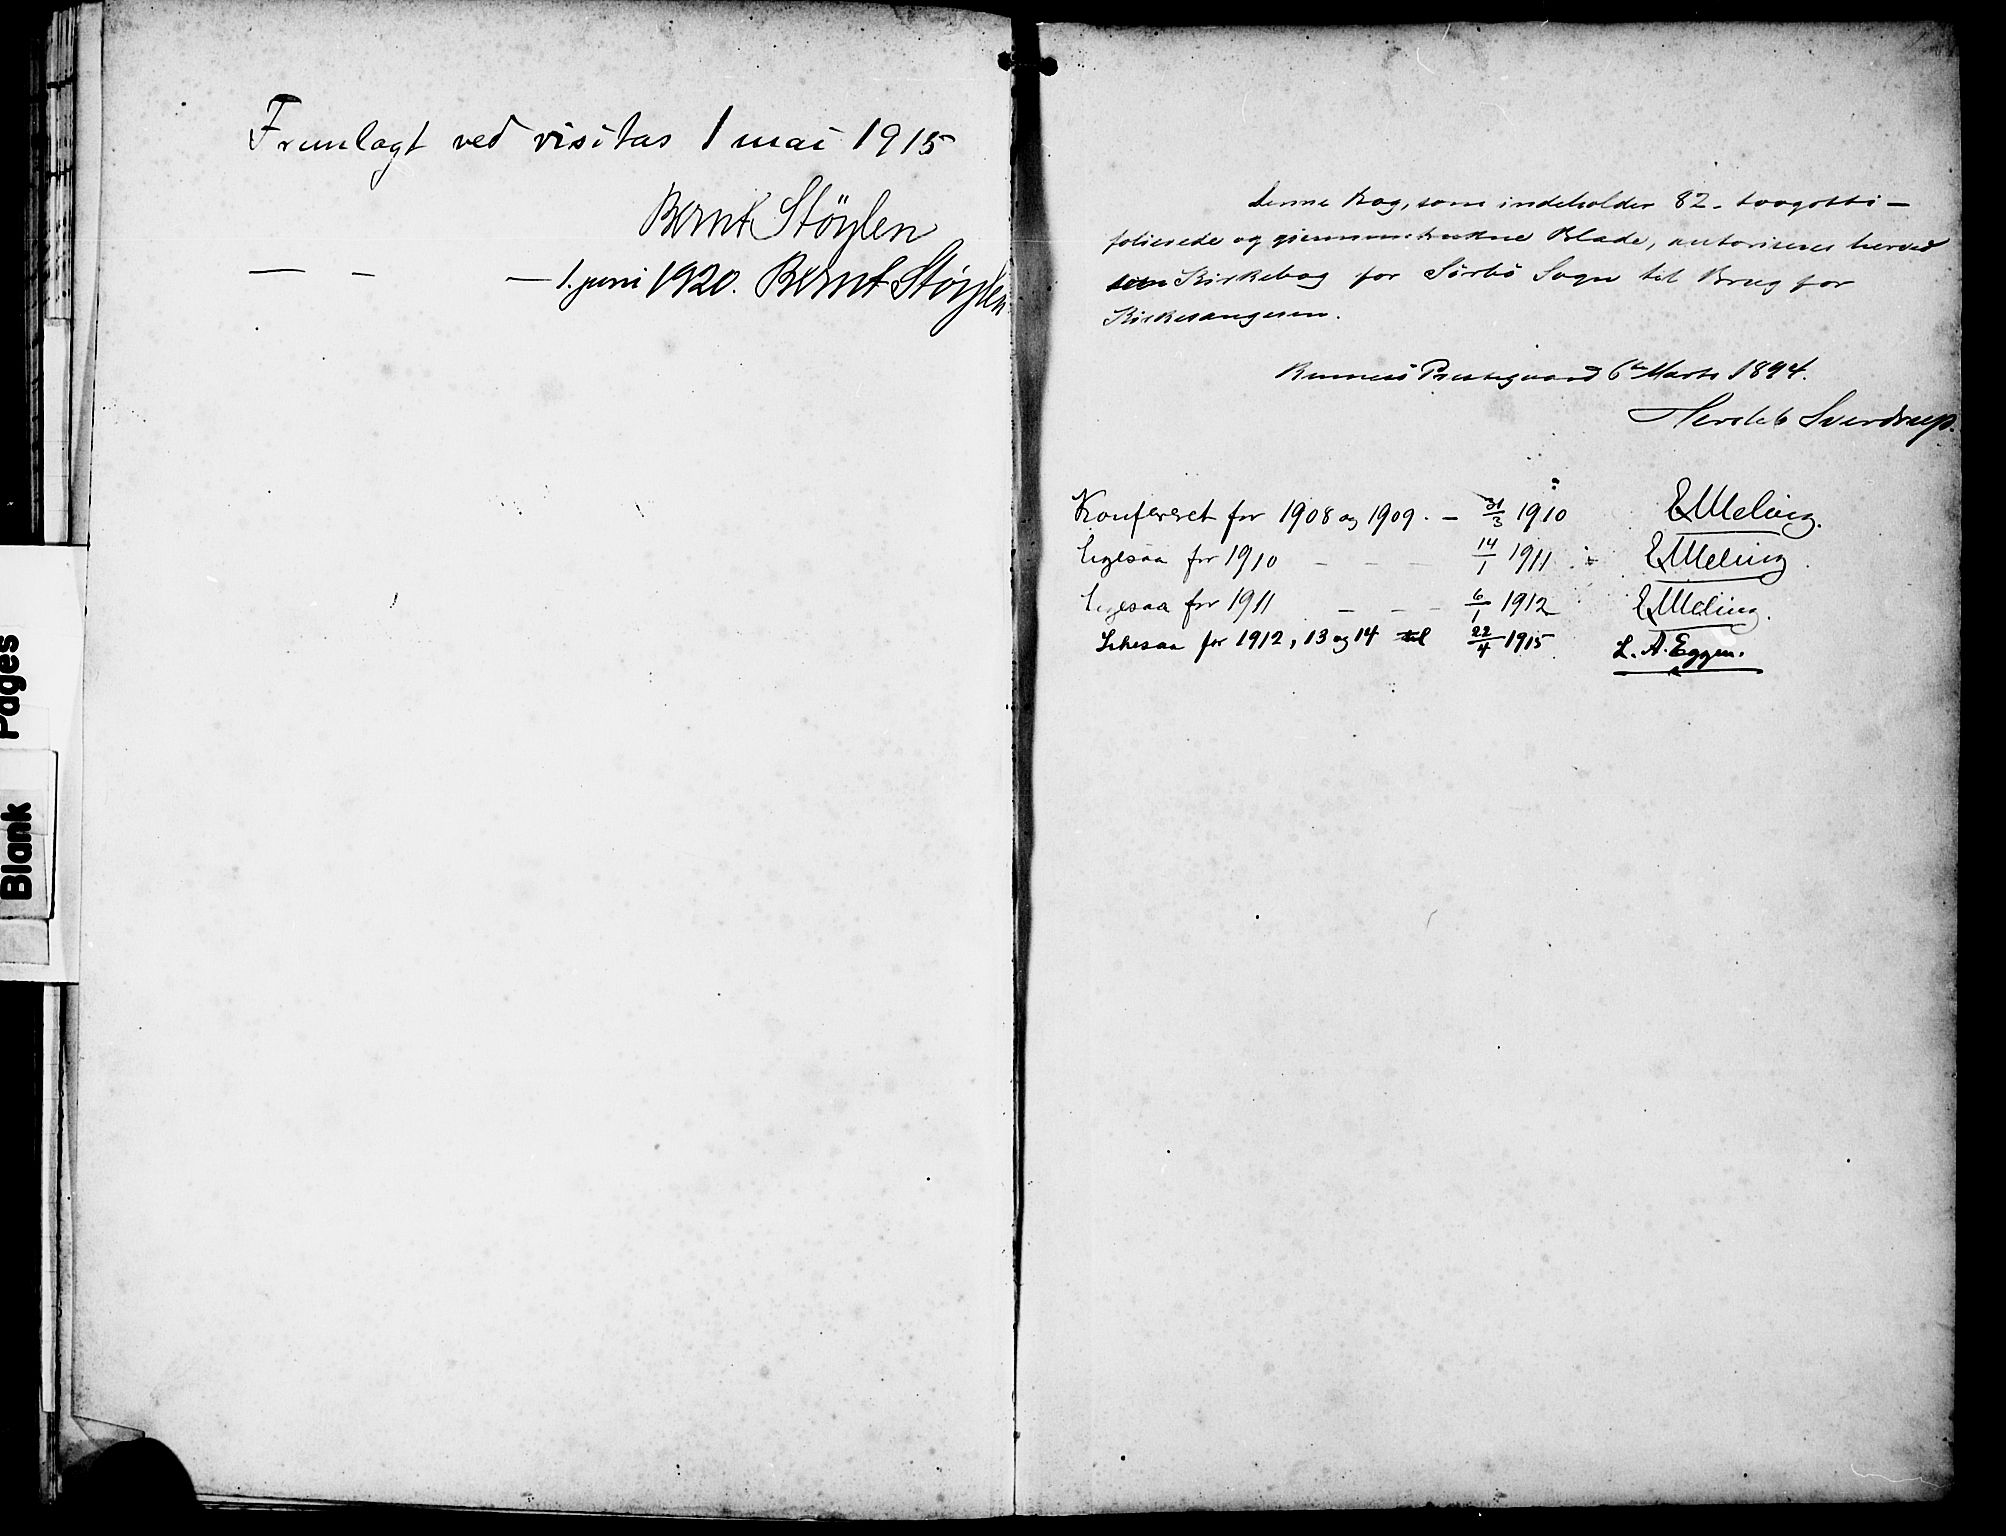 Fremlagt ved visitas 1 mai 1915
Bernt Støylen
— — — 1. juni 1920. Bernt Støylen
Denne Bog, som indeholder 82 - toogotti -
folierede og gjennemtrukne Blade, autoriseres herved
som Kirkebog for Sørbø Sogn til Brug for
Kirkesangeren.
Rennesø Prestegaard 6te Marts 1894.
Hersleb Sverdrup.
Konfereret for 1908 og 1909. – 31/3 1910 EMeling.
Ligesaa for 1910 – – – 14/1 1911 EMeling.
Ligesaa for 1911 – – – 6/1 1912 EMeling.
Likesaa for 1912, 13 og 14 til 22/4 1915 L. A. Eggen.
Blank Pages